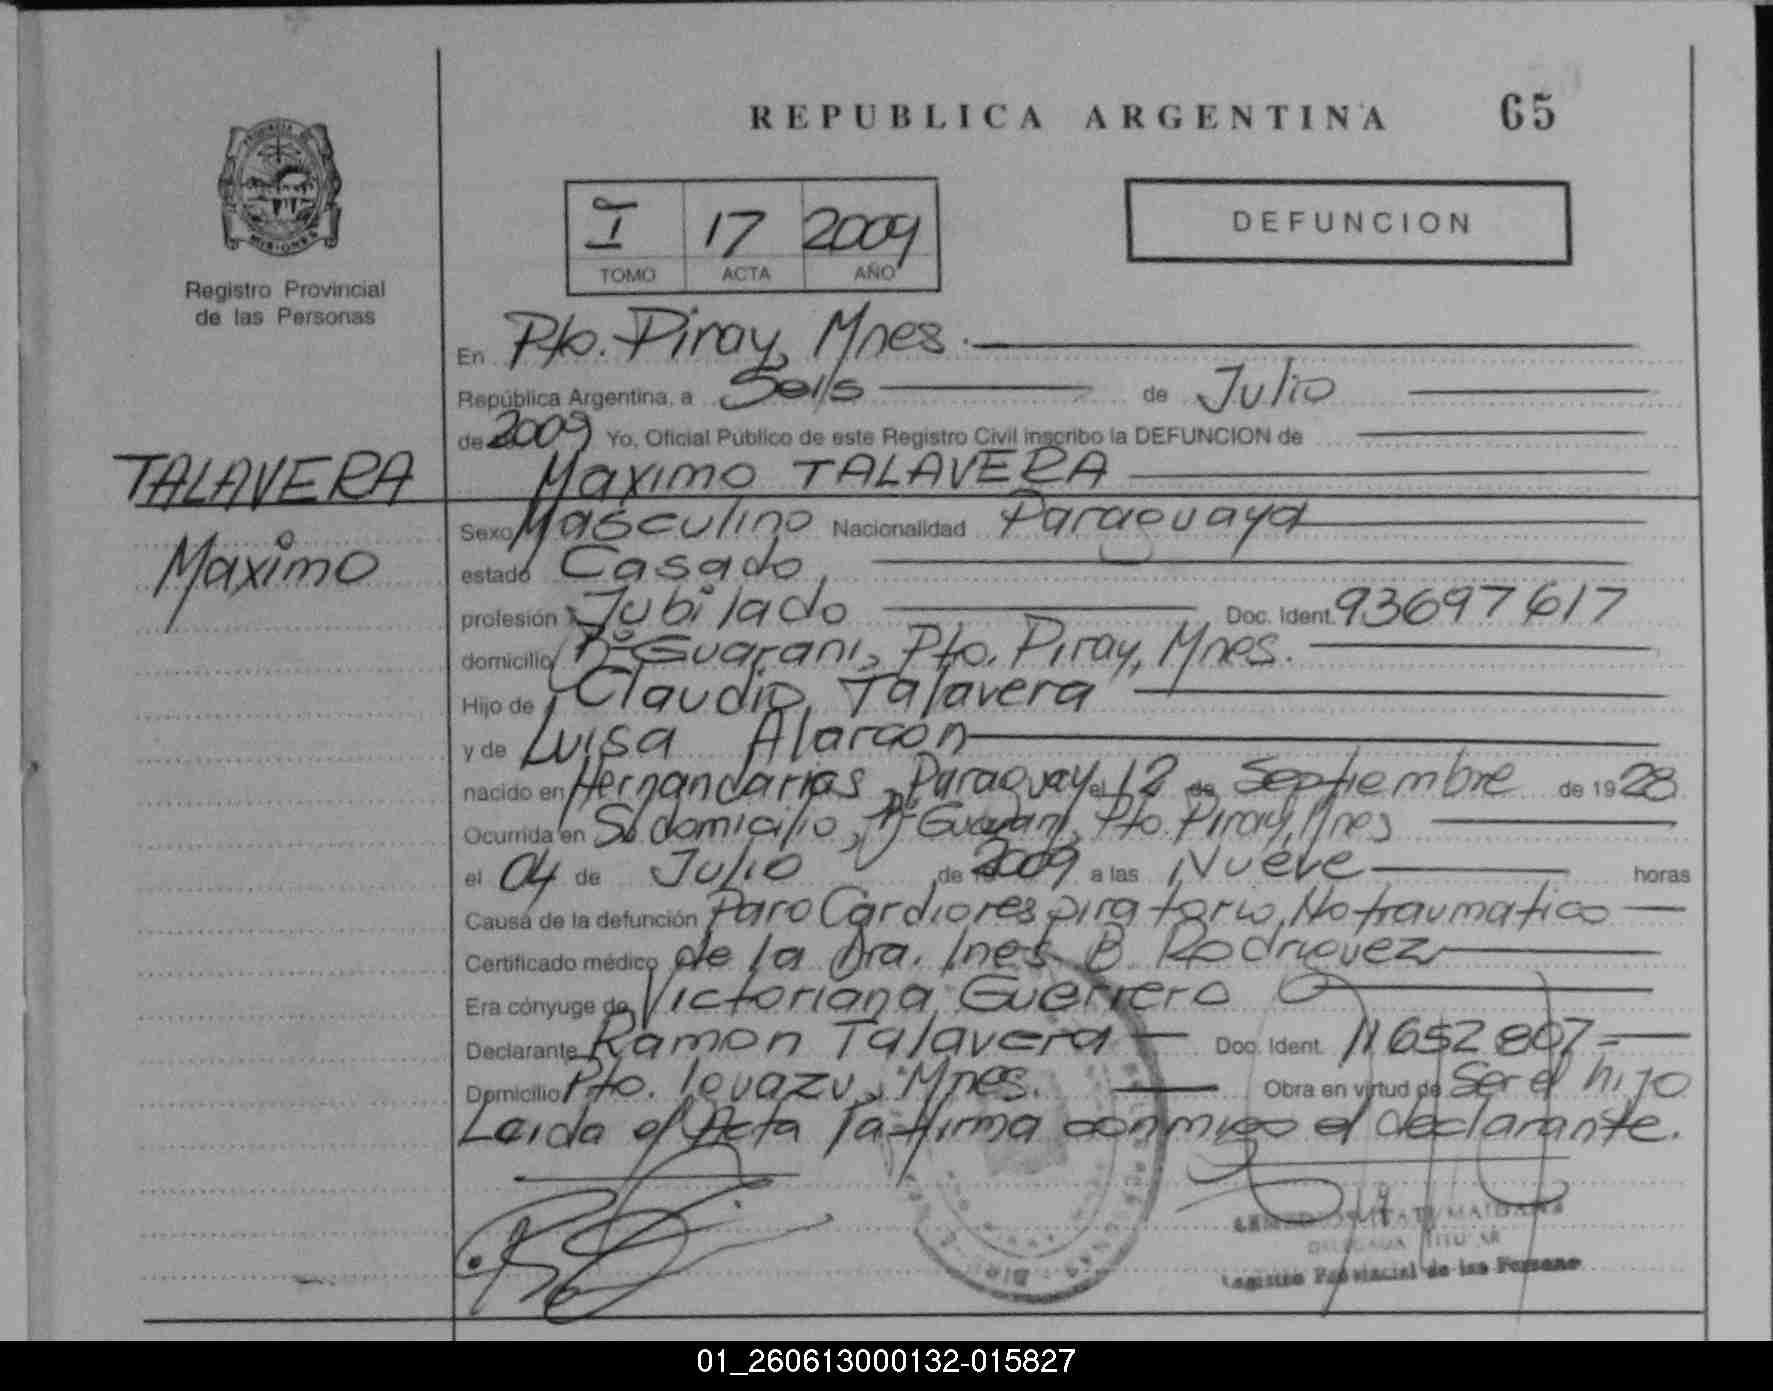 REPUBLICA ARGENTINA 65
I 17 2009
TOMO ACTA AÑO
DEFUNCION
Registro Provincial
de las Personas
En Pto. Piray, Mnes.
República Argentina, a Seis de Julio
de 2009 Yo, Oficial Público de este Registro Civil inscribo la DEFUNCION de
TALAVERA
Maximo
Maximo TALAVERA
Sexo Masculino Nacionalidad Paraguaya
estado Casado
profesión Jubilado Doc. Ident. 93697617
domicilio Bº Guarani, Pto. Piray, Mnes.
Hijo de Claudio Talavera
y de Luisa Alarcon
nacido en Hernandarias, Paraguay el 12 de Septiembre de 1928
Ocurrida en Su domicilio, Bº Guarani, Pto. Piray, Mnes
el 04 de Julio de 2009 a las Nueve horas
Causa de la defunción Paro Cardiorespiratorio, No traumatico
Certificado médico de la Dra. Ines B. Rodriguez
Era cónyuge de Victoriana Guerrero
Declarante Ramon Talavera Doc. Ident. 11652807
Domicilio Pto. Iguazu, Mnes. Obra en virtud de Ser el hijo
Leida el Acta la firma conmigo el declarante.
DELEGADA TITULAR
Registro Provincial de las Personas
01_260613000132-015827